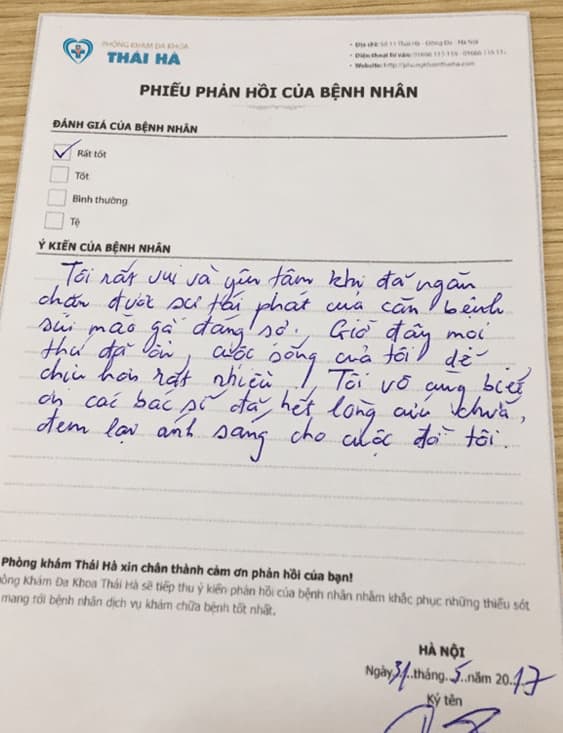 PHÒNG KHÁM ĐA KHOA
THÁI HÀ
• Địa chỉ: Số 11 Thái Hà - Đống Đa - Hà Nội
• Điện thoại tư vấn:
• Website:
PHIẾU PHẢN HỒI CỦA BỆNH NHÂN
ĐÁNH GIÁ CỦA BỆNH NHÂN
Rất tốt
Tốt
Bình thường
Tệ
Ý KIẾN CỦA BỆNH NHÂN
Tôi rất vui và yên tâm khi đã ngăn
chặn được sự tái phát của căn bệnh
sùi mào gà đáng sợ. Giờ đây mọi
thứ đã ổn, cuộc sống của tôi dễ
chịu hơn rất nhiều. Tôi vô cùng biết
ơn các bác sĩ đã hết lòng cứu chữa,
đem lại ánh sáng cho cuộc đời tôi.
Phòng khám Thái Hà xin chân thành cảm ơn phản hồi của bạn!
Phòng Khám Đa Khoa Thái Hà sẽ tiếp thu ý kiến phản hồi của bệnh nhân nhằm khắc phục những thiếu sót
mang tới bệnh nhân dịch vụ khám chữa bệnh tốt nhất.
HÀ NỘI
Ngày 31 tháng 5 năm 2017
Ký tên